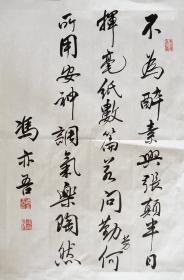 不為醉素與張顛半日
揮毫紙數篇若問勤勞何
所用安神調氣樂陶然
馮亦吾